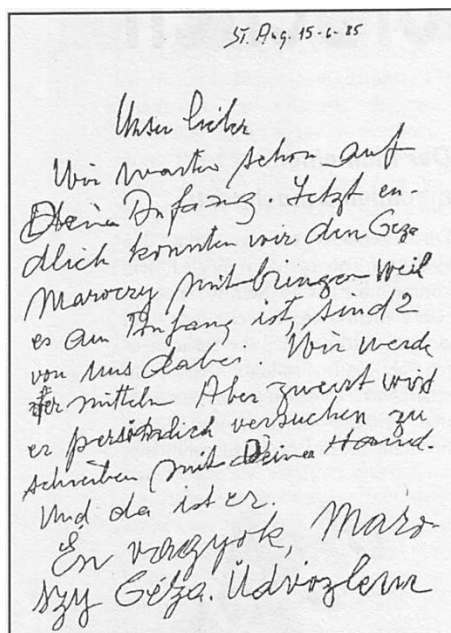 St. Aug. 15-6-85
Unser lieber
Wir warten schon auf
Deine Anfang. Jetzt en-
dlich konnten wir den Géza
Maroczy mitbringen weil
es am Anfang ist, sind 2
von uns dabei. Wir werde
vermitteln. Aber zuerst wird
er persönlich versuchen zu
schreiben mit Deiner Hand.
Und da ist er.
Én vagyok, Maro-
szy Géza. Üdvözlem